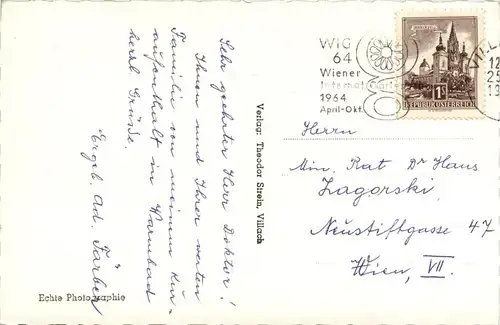 Sehr geehrter Herr Doktor!
Ihnen und Ihrer werten
Familie von meinem Kur-
aufenthalt in Warmbad
herzl. Grüsse.
Ergeb. Ad. Färber
Echte Photographie
Verlag: Theodor Strein, Villach
WIG
64
Wiener
Internat.
1964
April-Okt.
1S
REPUBLIK ÖSTERREICH
VILL
12
Herrn
Min. Rat Dr Hans
Zagorski
Neustiftgasse 47
Wien, VII.